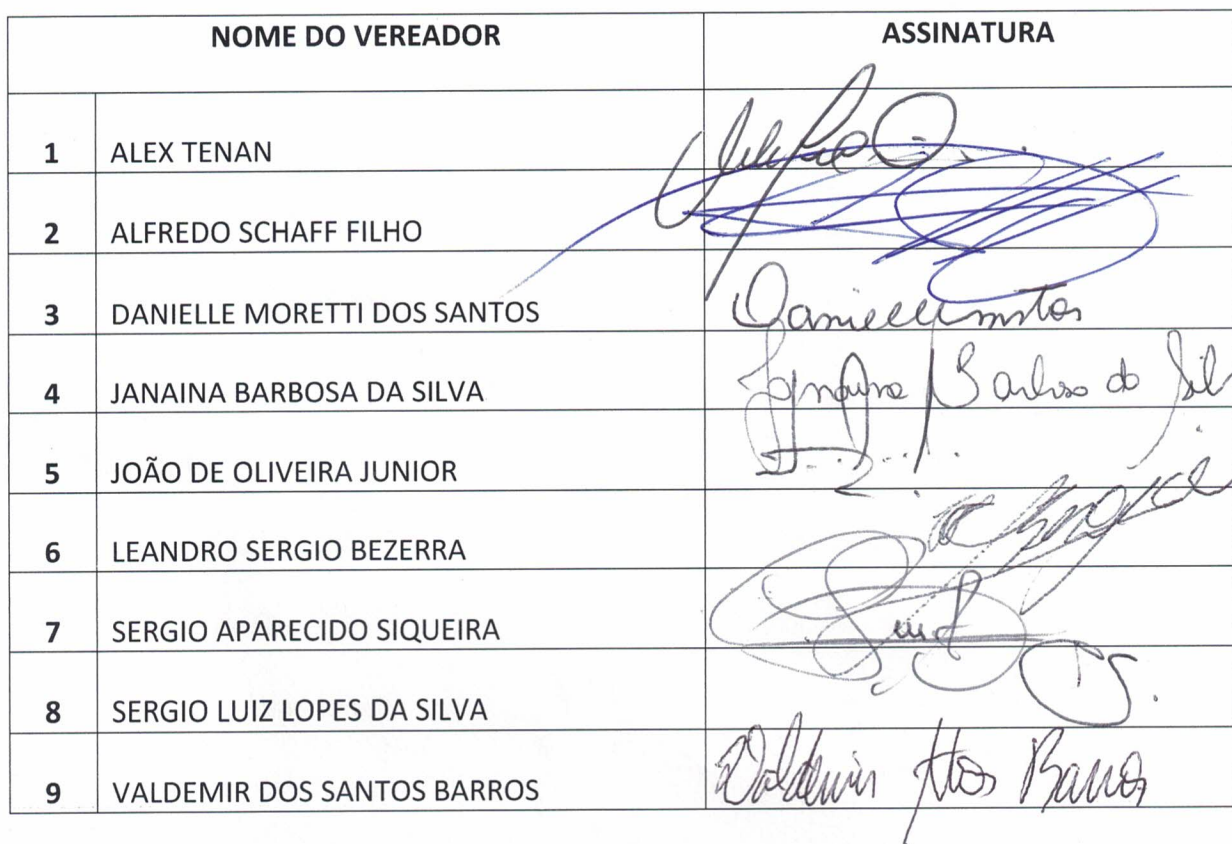 NOME DO VEREADOR ASSINATURA
1 ALEX TENAN
2 ALFREDO SCHAFF FILHO
3 DANIELLE MORETTI DOS SANTOS
4 JANAINA BARBOSA DA SILVA Janayna Barbosa da Sil
5 JOÃO DE OLIVEIRA JUNIOR
6 LEANDRO SERGIO BEZERRA
7 SERGIO APARECIDO SIQUEIRA
8 SERGIO LUIZ LOPES DA SILVA
9 VALDEMIR DOS SANTOS BARROS Valdemir Barros